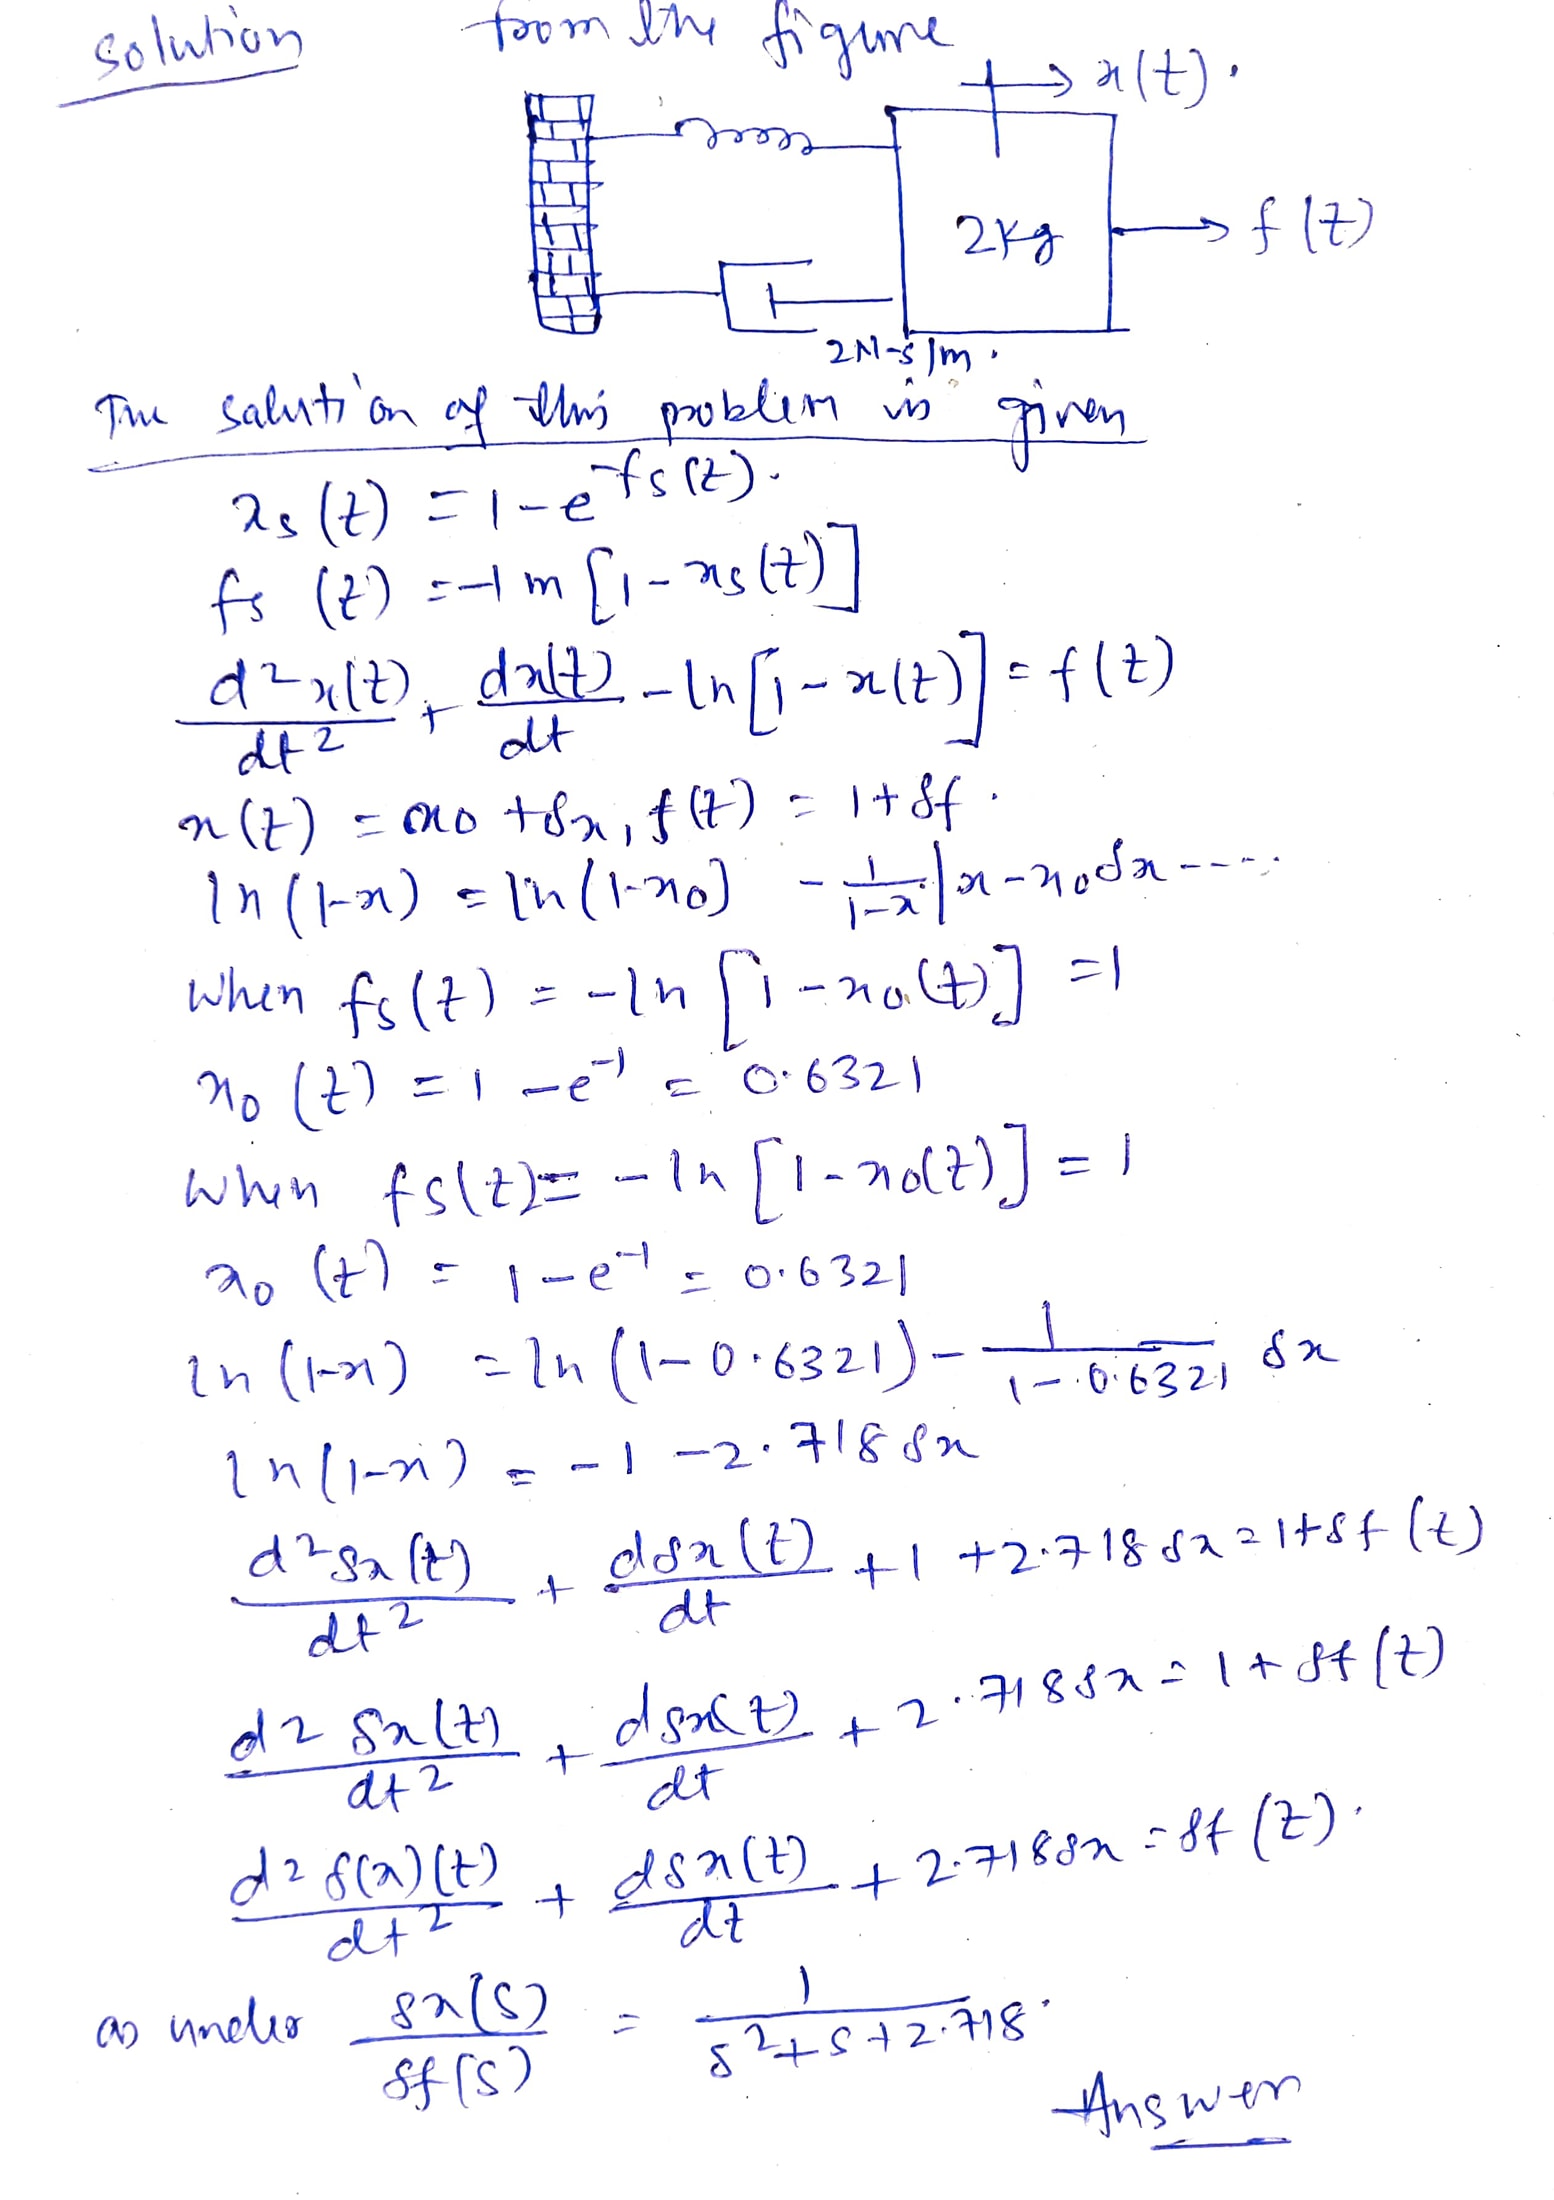 solution from the figure
x(t).
2Kg
f(t)
2N-s/m.
The solution of this problem is given
xs(t) = 1-e^-fs(t).
fs(t) = -1m[1-xs(t)]
d²x(t)/dt² + dx(t)/dt - ln[1-x(t)] = f(t)
x(t) = x0 + δx, f(t) = 1+δf.
ln(1-x) = ln(1-x0) - 1/(1-x)|x-x0 δx ----
When fs(t) = -ln[1-x0(t)] = 1
x0(t) = 1-e^-1 = 0.6321
When fs(t) = -ln[1-x0(t)] = 1
x0(t) = 1-e^-1 = 0.6321
ln(1-x) = ln(1-0.6321) - 1/(1-0.6321) δx
ln(1-x) = -1-2.718δx
d²δx(t)/dt² + dδx(t)/dt + 1 + 2.718δx = 1+δf(t)
d²δx(t)/dt² + dδx(t)/dt + 2.718δx = 1+δf(t)
d²δ(x)(t)/dt² + dδx(t)/dt + 2.718δx = δf(t).
as under δx(s)/δf(s) = 1/(s²+s+2.718).
Answer